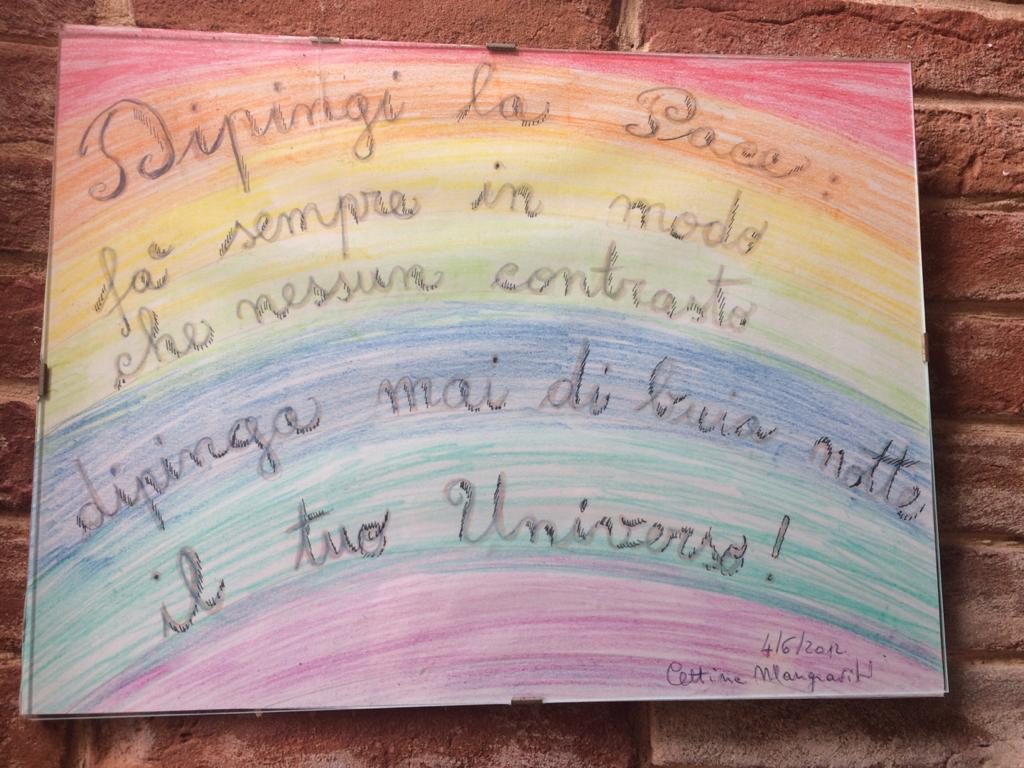 Dipingi la Pace:
fà sempre in modo
che nessun contrasto
dipinga mai di buia notte
il tuo Universo!
4/6/2012
Cettina